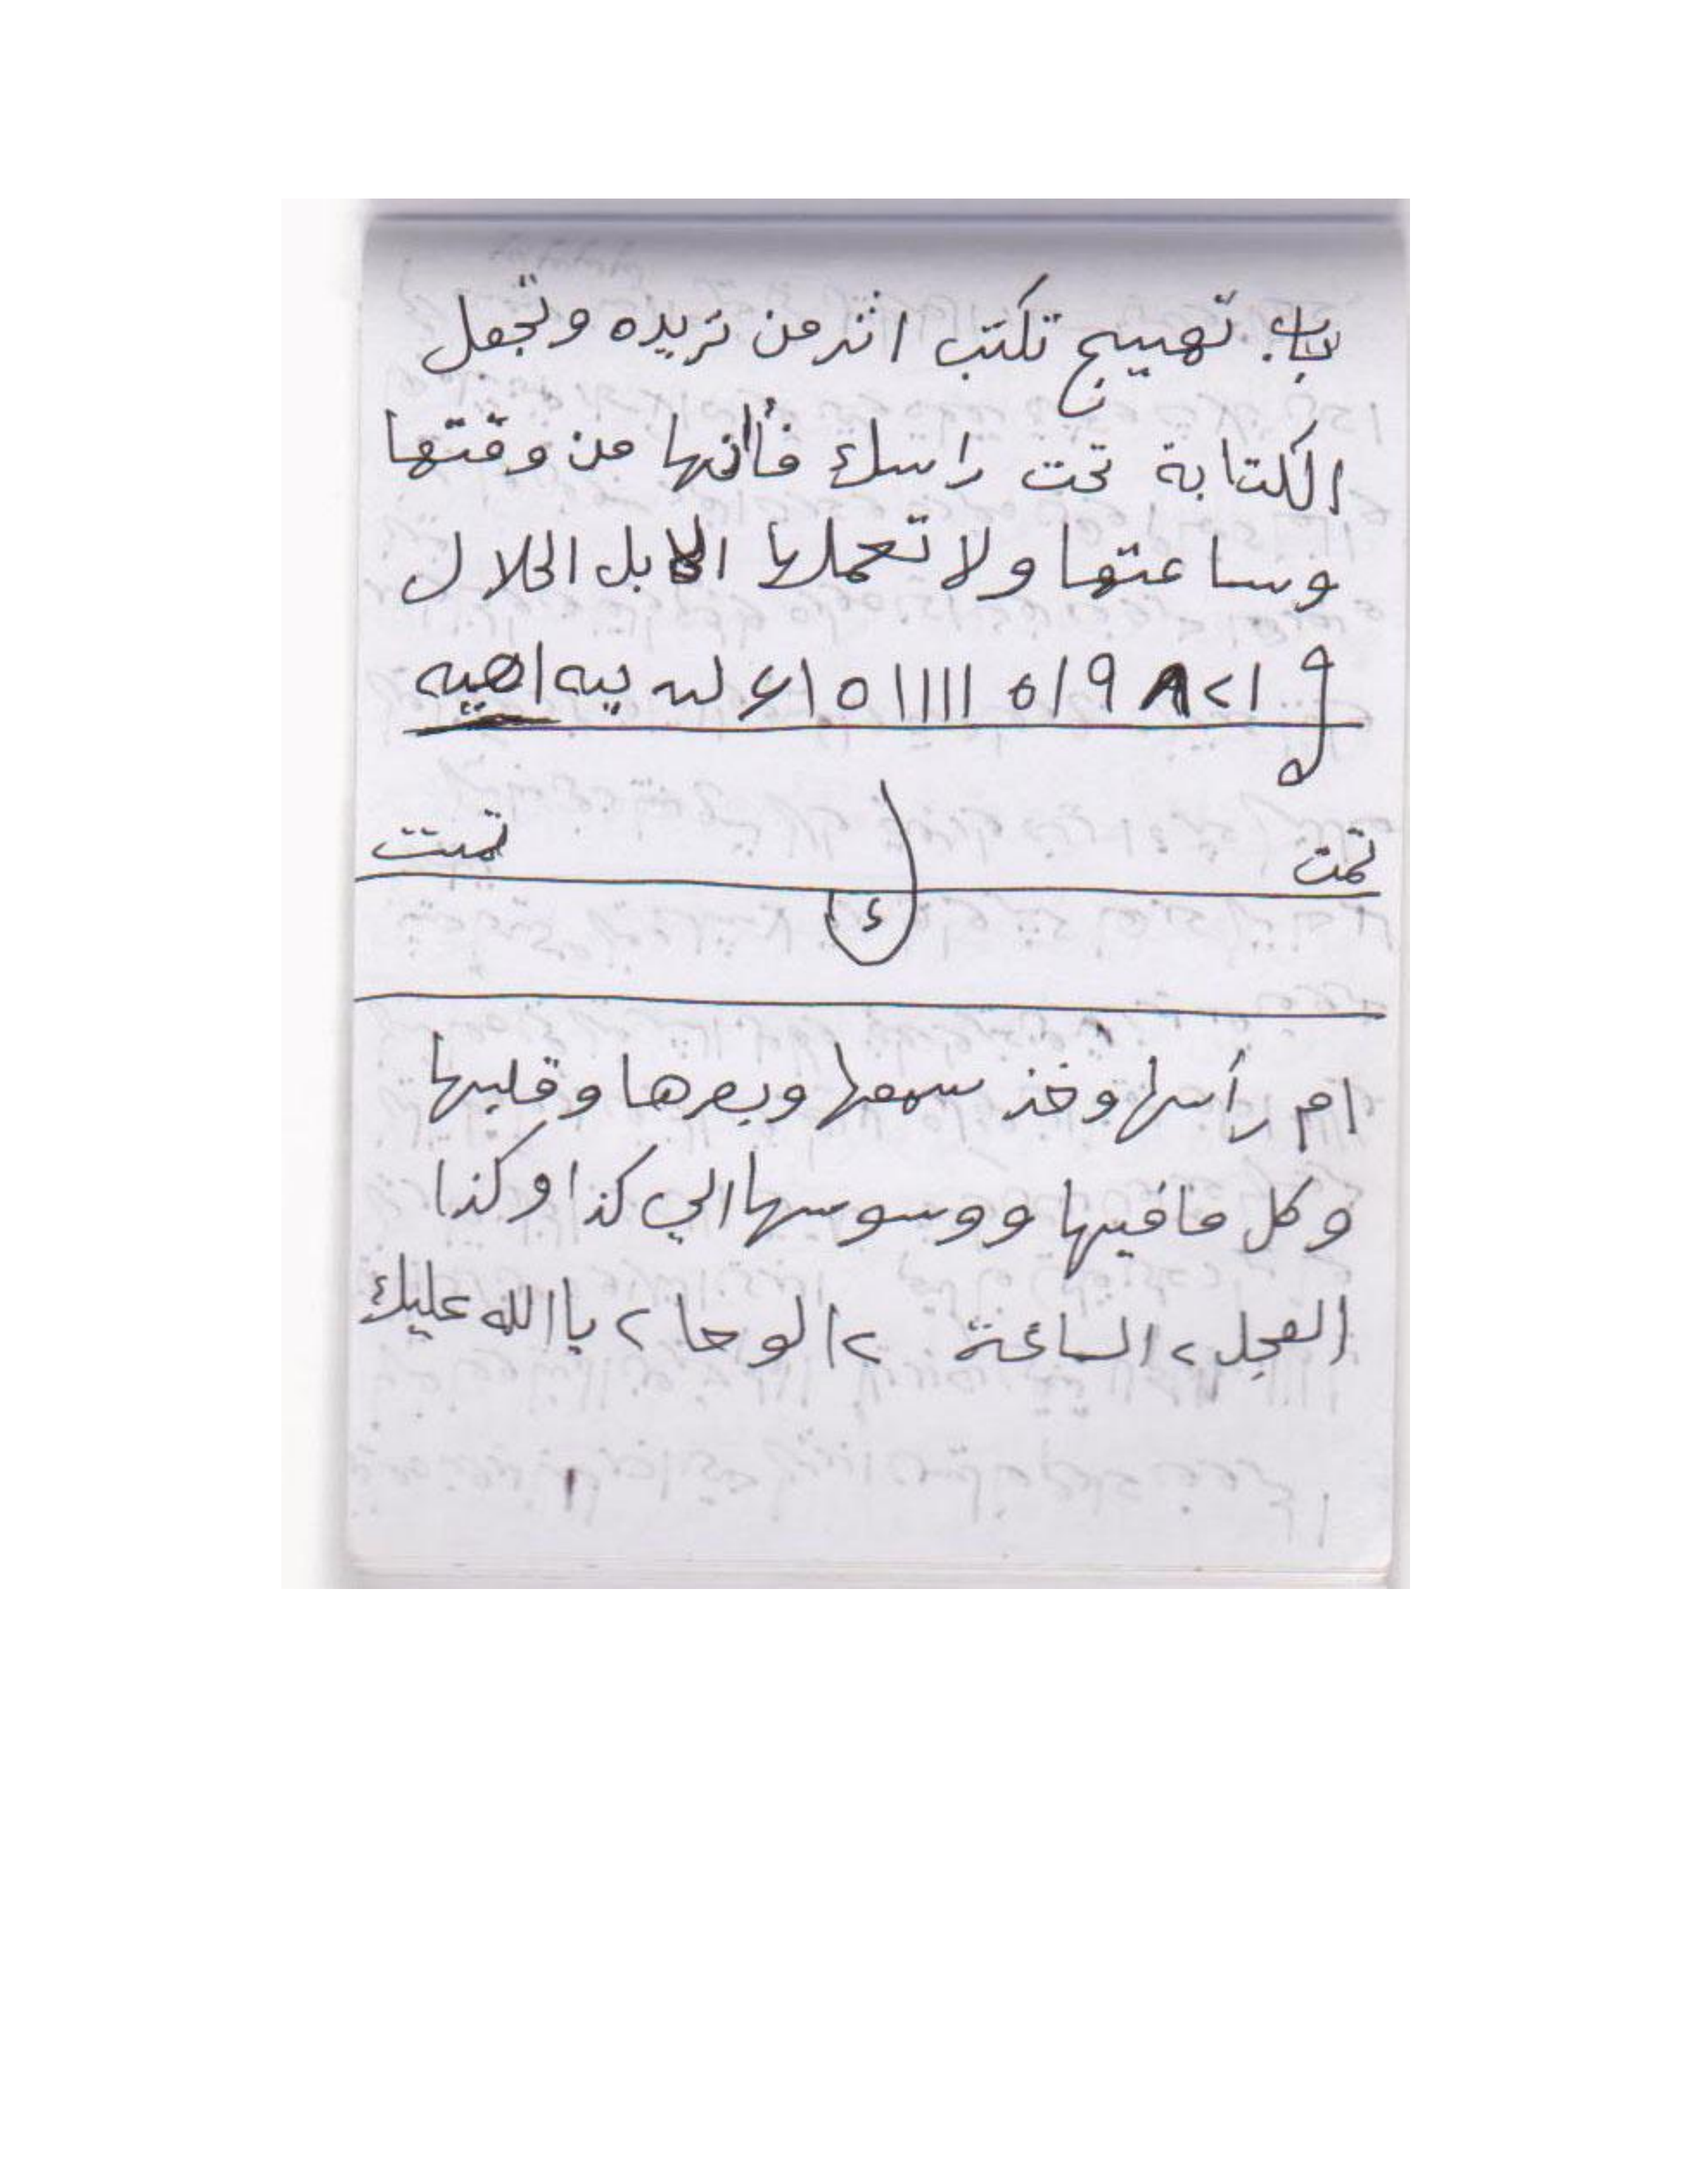 باب تهييج تكتب اثر من تريده وتجعل
الكتابة تحت راسك فأنها من وقتها
وساعتها ولا تعملها الا بل الحلال
و ا > ٨ ٩ ا ٥ ١١١١ ٥ ا ع لله ييه اهيه
تمت تمت
ء
ام رأسها وخذ سمعها وبصرها وقلبها
وكل مافيها ووسوسها الي كذا وكذا
العجل ٢ الساعة ٢ الوحا ٢ يا الله عليك